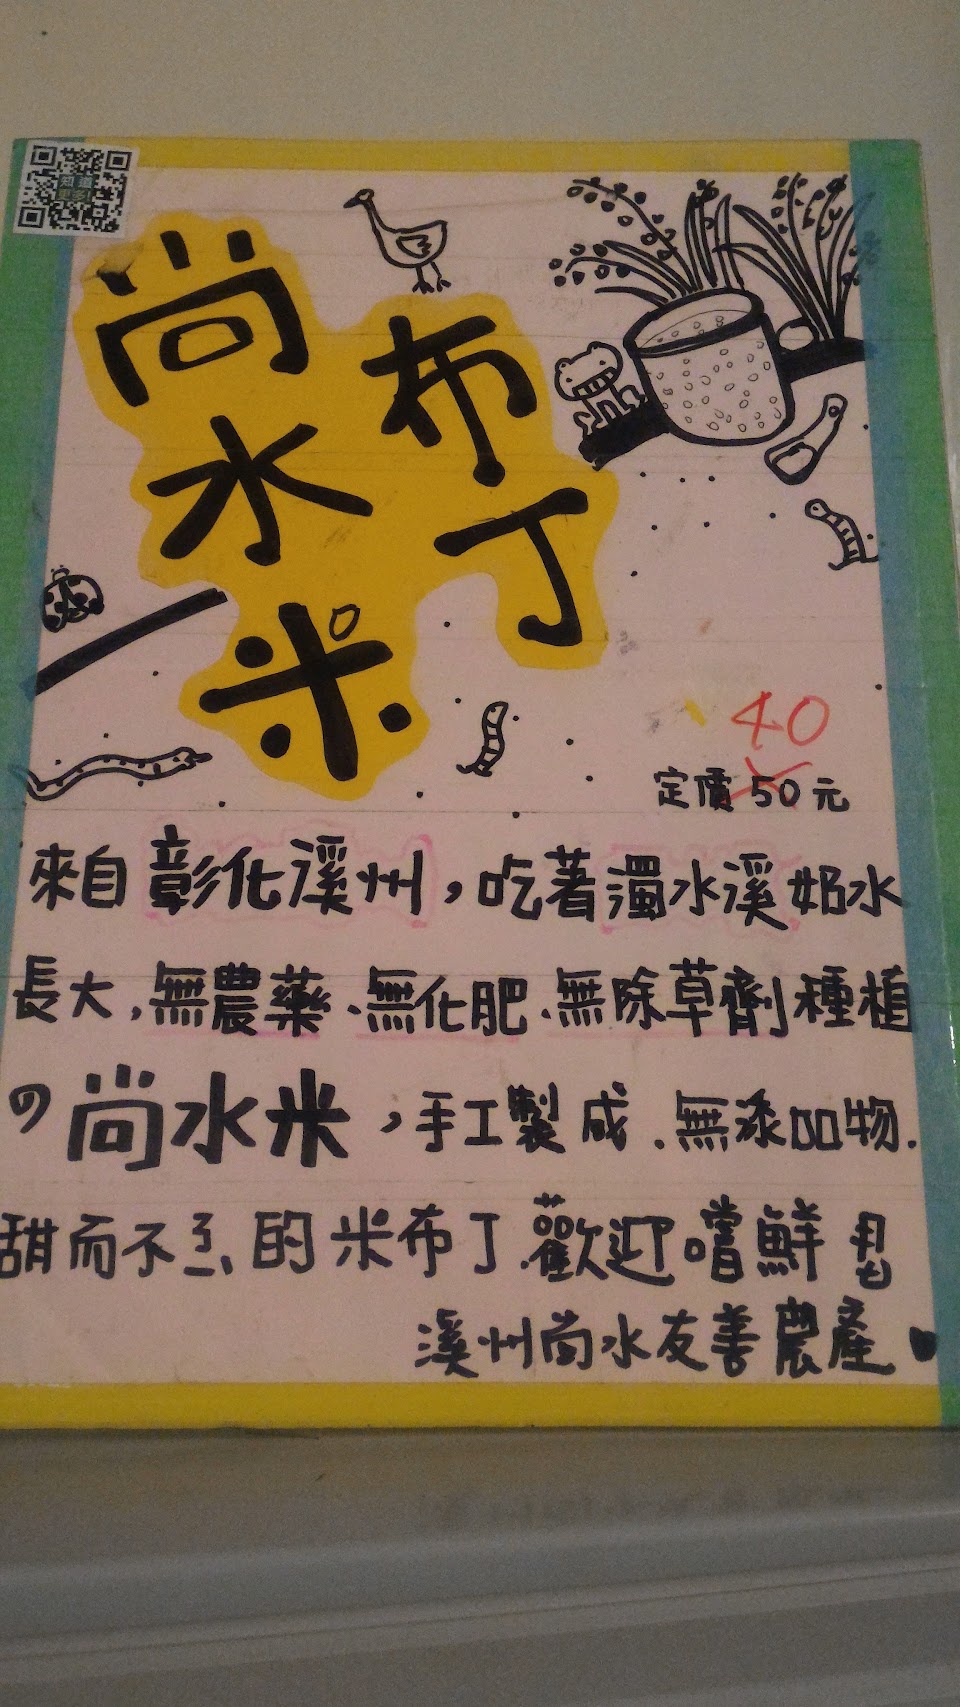 知道
更多
尚水米
布丁
40
定價 50 元
來自彰化溪州，吃著濁水溪奶水
長大，無農藥、無化肥、無除草劑種植
の尚水米，手工製成．無添加物．
甜而不ㄋ的米布丁．歡迎嚐鮮
溪州尚水友善農產